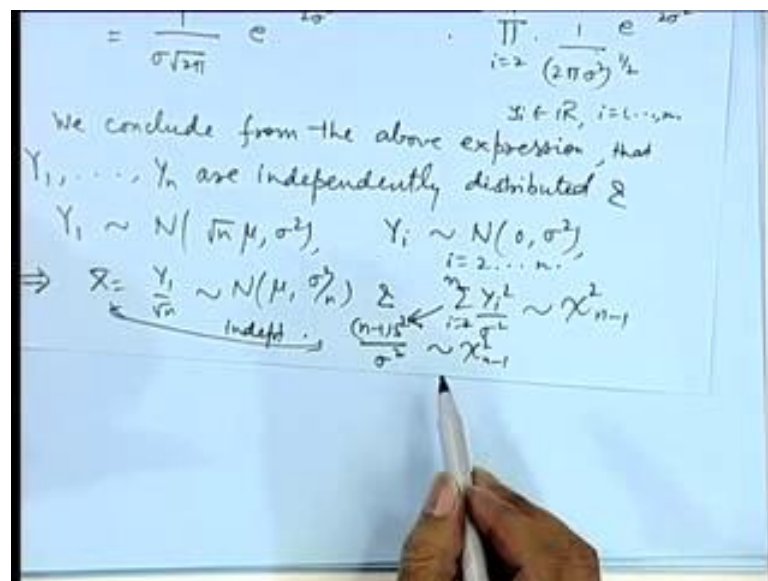 = 1/(σ√2π) e 2σ² . π i=2 . 1/(2πσ²)^{1/2} e 2σ²
yi ∈ ℝ, i=1...,n.
We conclude from the above expression, that
Y₁, ..., Yₙ are independently distributed &
Y₁ ~ N(√n μ, σ²), Yᵢ ~ N(0, σ²), i=2...n.
⇒ X̄ = Y₁/√n ~ N(μ, σ²/n) & Σ_{i=2}^{n} Yᵢ²/σ² ~ χ²ₙ₋₁
indept. (n-1)S²/σ² ~ χ²ₙ₋₁